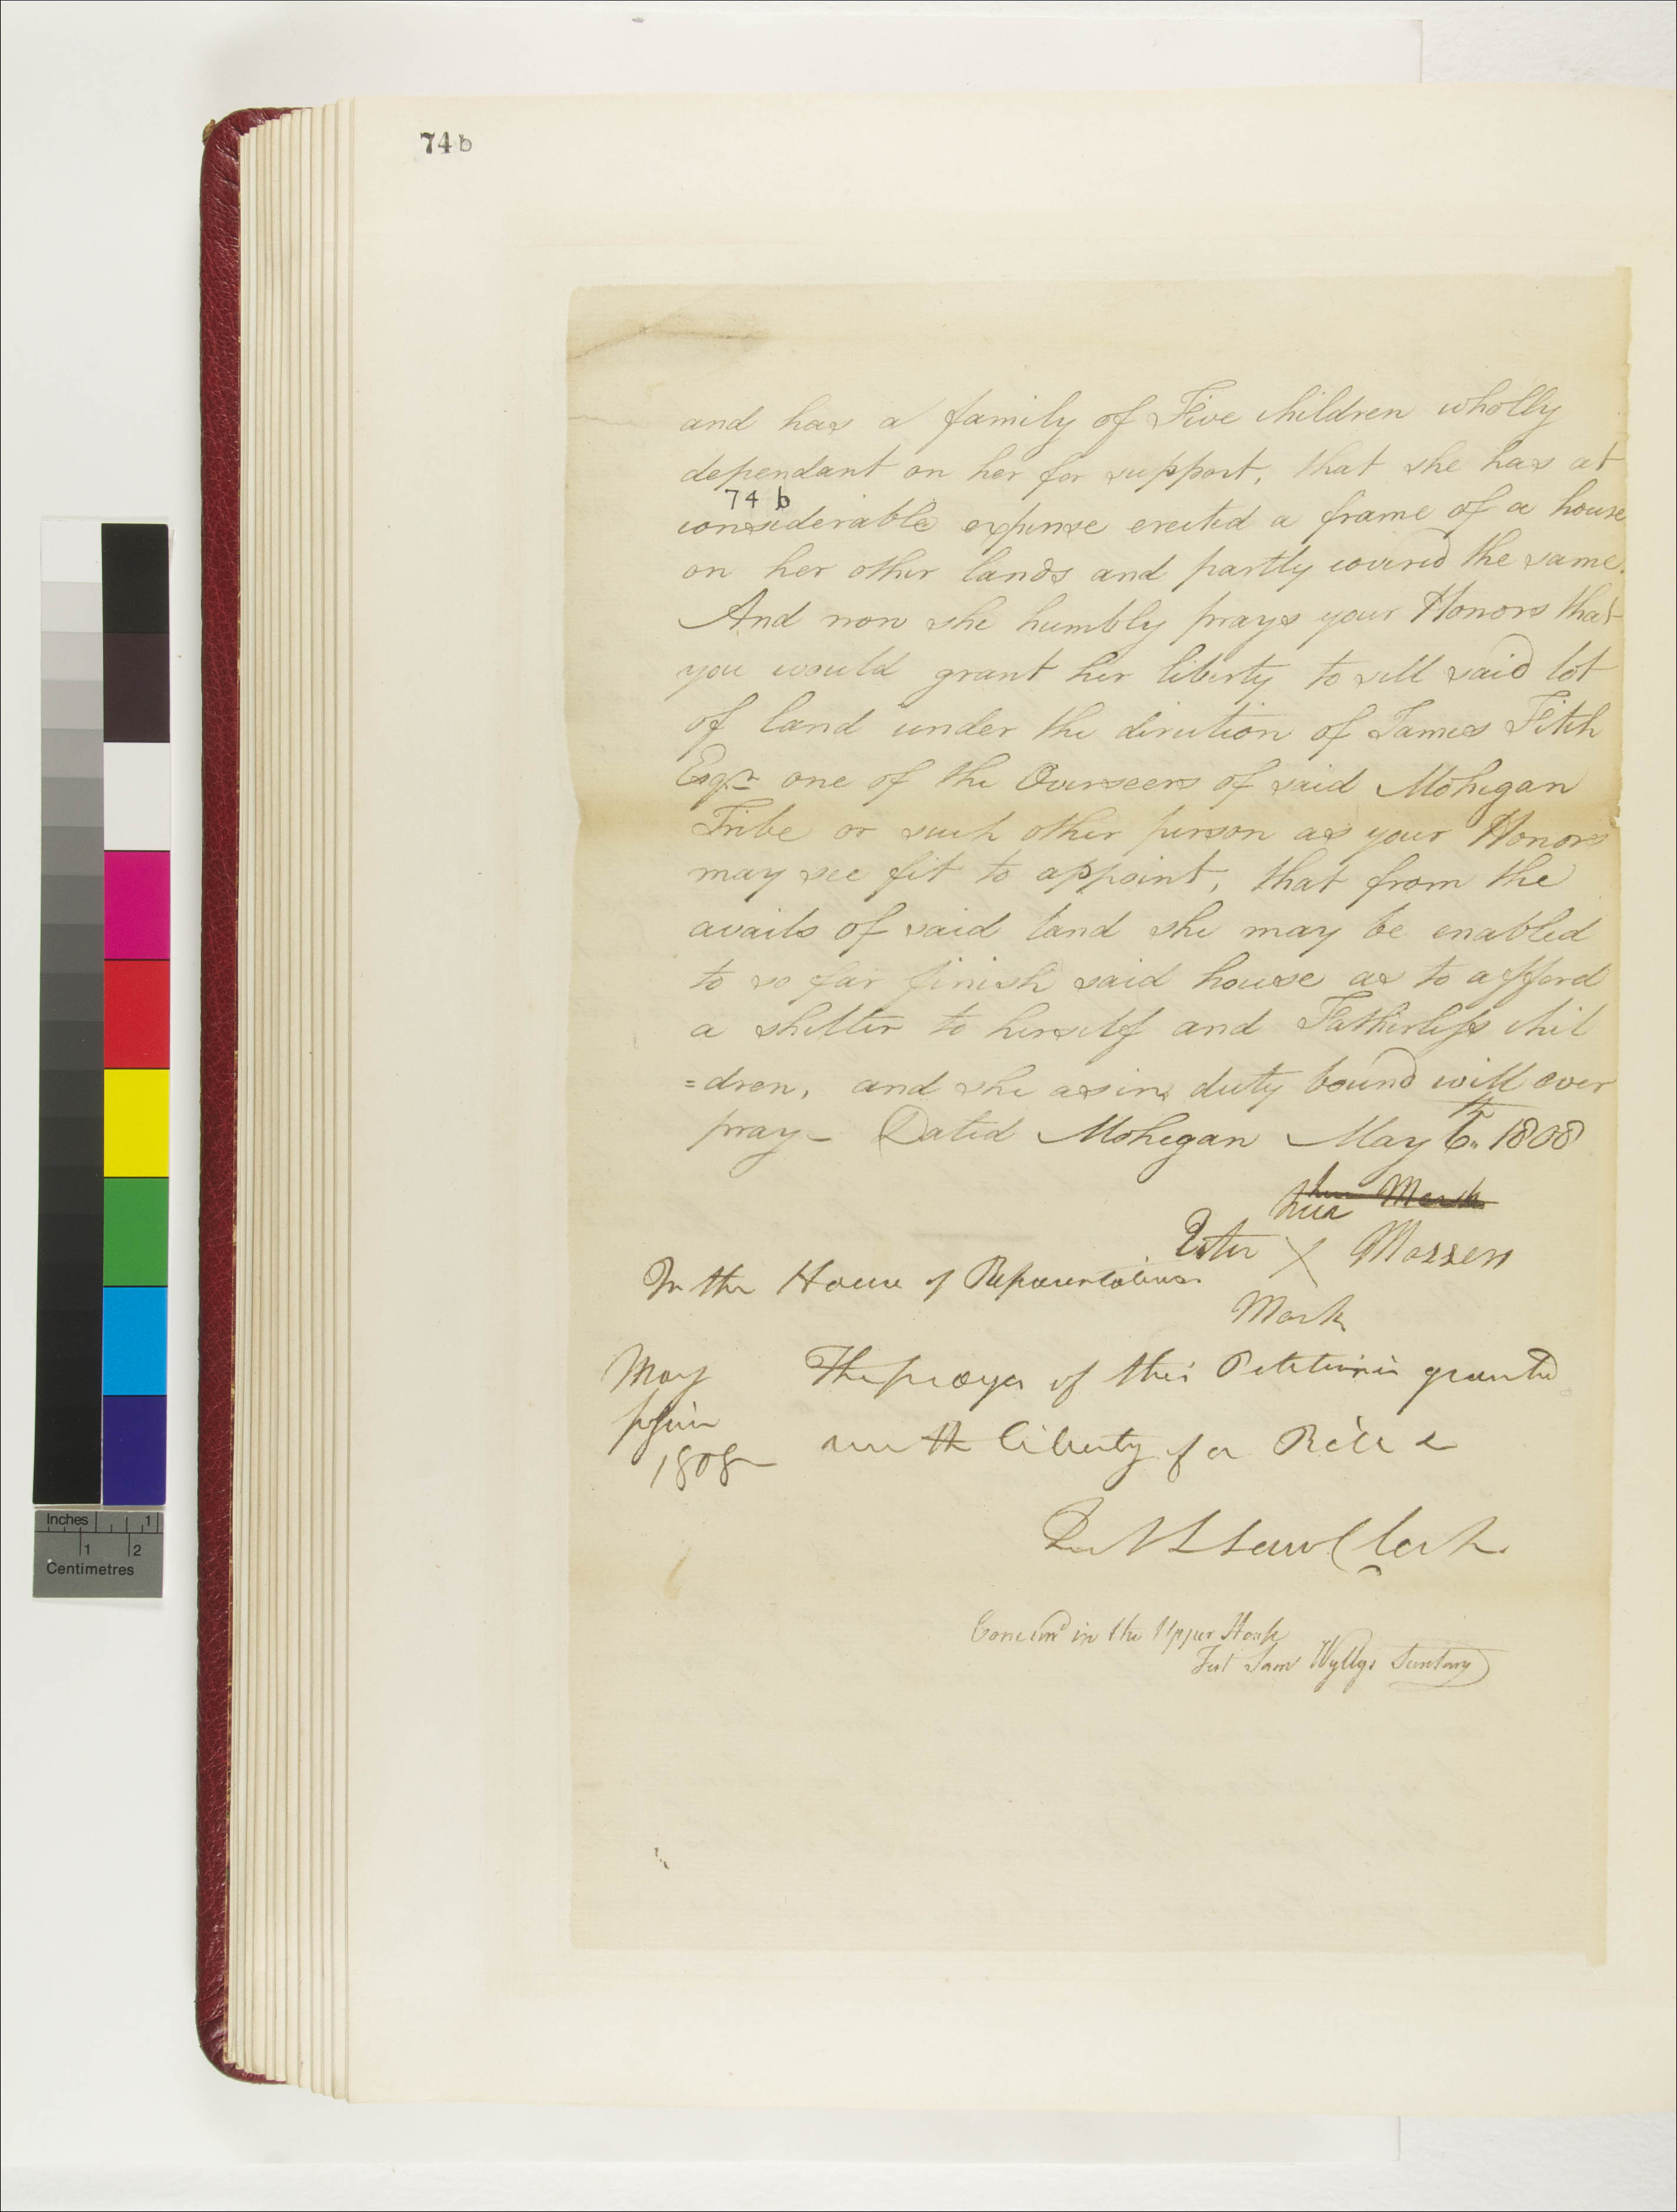 74b
and has a family of Five children wholly
dependant on her for support, that she has at
74 b
considerable expense erected a frame of a house
on her other lands and partly covered the same.
And now she humbly prays your Honors that
you would grant her liberty to sell said lot
of land under the direction of James Fitch
Esqr. one of the Overseers of said Mohegan
Tribe or such other person as your Honors
may see fit to appoint, that from the
avails of said land she may be enabled
to so far finish said house as to afford
a shelter to herself and Fatherless chil
=dren, and she as in duty bound will ever
pray - Dated Mohegan May 6th 1808
her Mark
her
Ester X
Mark
In the House of Representatives
May
1808
The prayer of this Petition is granted
with liberty of a Bill &
Clerk
Concurd in the Upper House
Test Sam Wyllys Secretary
Inches 1
1 2
Centimetres